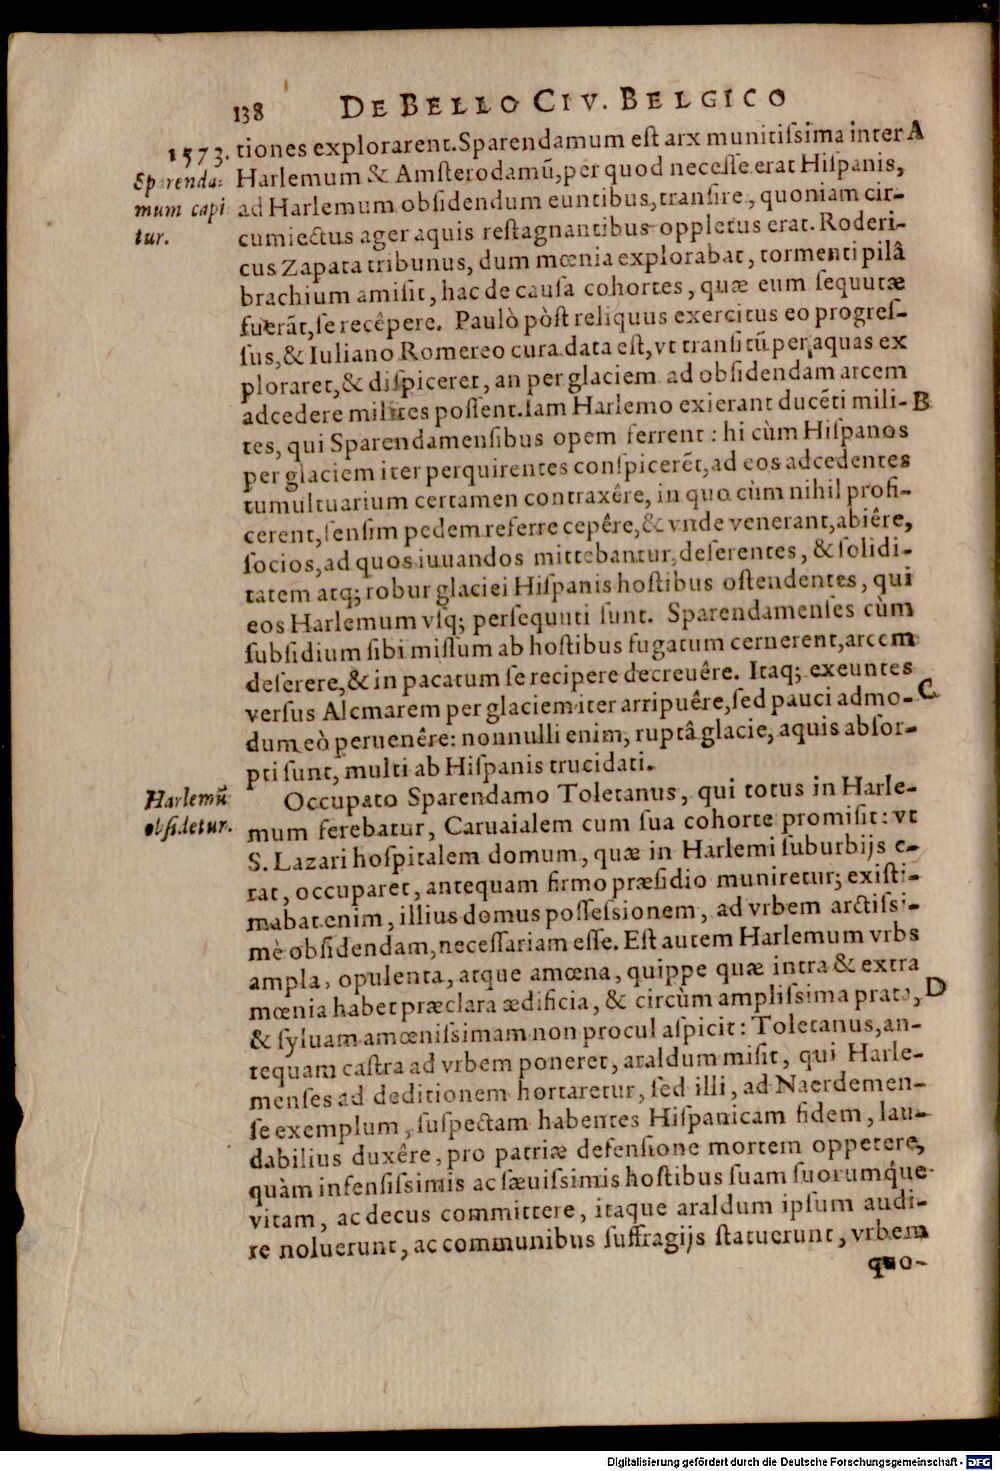 138 DE BELLO CIV. BELGICO
1573. tiones explorarent. Sparendamum eſt arx munitiſsima inter A
Sparenda= Harlemum & Amſterodamũ, per quod neceſſe erat Hiſpanis,
mum capi ad Harlemum obſidendum euntibus, tranſire, quoniam cir-
tur. cumiectus ager aquis reſtagnantibus oppletus erat. Roderi-
cus Zapata tribunus, dum mœnia explorabat, tormenti pilâ
brachium amiſit, hac de cauſa cohortes, quæ eum ſequutæ
fuerãt, ſe recêpere. Paulò pòſt reliquus exercitus eo progreſ-
ſus, & Iuliano Romereo cura data eſt, vt tranſitũ per aquas ex
ploraret, & diſpiceret, an per glaciem ad obſidendam arcem
adcedere milites poſſent. Iam Harlemo exierant ducẽti mili- B
tes, qui Sparendamenſibus opem ferrent: hi cùm Hiſpanos
per glaciem iter perquirentes conſpicerẽt, ad eos adcedentes
tumultuarium certamen contraxêre, in quo cùm nihil profi-
cerent, ſenſim pedem referre cepêre, & vnde venerant, abiêre,
ſocios, ad quos iuuandos mittebantur, deſerentes, & ſolidi-
tatem atq; robur glaciei Hiſpanis hoſtibus oſtendentes, qui
eos Harlemum vſq; perſequuti ſunt. Sparendamenſes cùm
ſubſidium ſibi miſſum ab hoſtibus fugatum cernerent, arcem
deſerere, & in pacatum ſe recipere decreuêre. Itaq; exeuntes
verſus Alcmarem per glaciem iter arripuêre, ſed pauci admo- C
dum eò peruenêre: nonnulli enim, ruptâ glacie, aquis abſor-
pti ſunt, multi ab Hiſpanis trucidati.
Harlemũ Occupato Sparendamo Toletanus, qui totus in Harle-
obſidetur. mum ferebatur, Caruaialem cum ſua cohorte promiſit: vt
S. Lazari hoſpitalem domum, quæ in Harlemi ſuburbijs e-
rat, occuparet, antequam firmo præſidio muniretur; exiſti-
mabat enim, illius domus poſſeſsionem, ad vrbem arctiſsi-
mè obſidendam, neceſſariam eſſe. Eſt autem Harlemum vrbs
ampla, opulenta, atque amœna, quippe quæ intra & extra
mœnia habet præclara ædificia, & circùm ampliſsima prata, D
& ſyluam amœniſsimam non procul aſpicit: Toletanus, an-
tequam caſtra ad vrbem poneret, araldum miſit, qui Harle-
menſes ad deditionem hortaretur, ſed illi, ad Naerdemen-
ſe exemplum, ſuſpectam habentes Hiſpanicam fidem, lau-
dabilius duxêre, pro patriæ defenſione mortem oppetere,
quàm infenſiſsimis ac ſæuiſsimis hoſtibus ſuam ſuorumq́ue
vitam, ac decus committere, itaque araldum ipſum audi-
re noluerunt, ac communibus ſuffragijs ſtatuerunt, vrbem
quo-
Digitalisierung gefördert durch die Deutsche Forschungsgemeinschaft - DFG